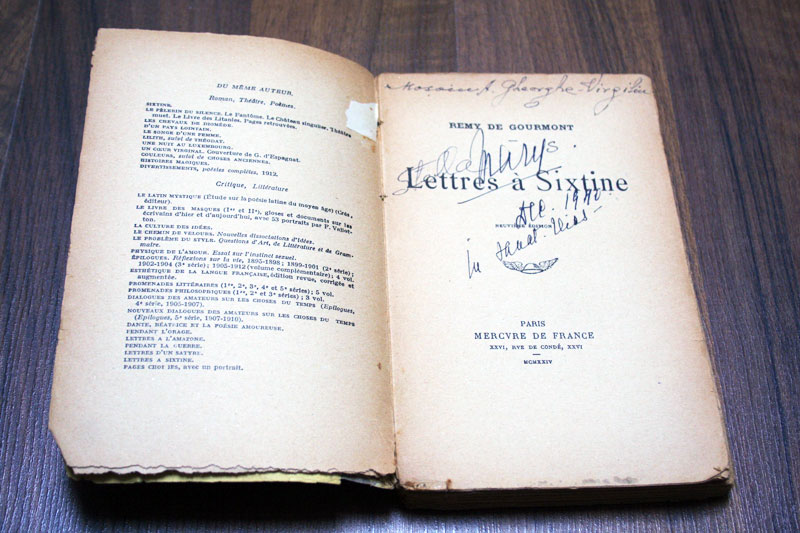 DU MÊME AUTEUR
Roman, Théâtre, Poèmes.
SIXTINE.
LE PÈLERIN DU SILENCE. Le Fantôme. Le Château singulier. Théâtre
muet. Le Livre des Litanies. Pages retrouvées.
LES CHEVAUX DE DIOMÈDE.
D'UN PAYS LOINTAIN.
LE SONGE D'UNE FEMME.
LILITH, suivi de THÉODAT.
UNE NUIT AU LUXEMBOURG.
UN CŒUR VIRGINAL. Couverture de G. d'Espagnat.
COULEURS, suivi de CHOSES ANCIENNES.
HISTOIRES MAGIQUES.
DIVERTISSEMENTS, poésies complètes, 1912.
Critique, Littérature
LE LATIN MYSTIQUE (Étude sur la poésie latine du moyen âge) (Crès,
éditeur).
LE LIVRE DES MASQUES (Ier et IIe), gloses et documents sur les
écrivains d'hier et d'aujourd'hui, avec 53 portraits par F. Vallot-
ton.
LA CULTURE DES IDÉES.
LE CHEMIN DE VELOURS. Nouvelles dissociations d'idées.
LE PROBLÈME DU STYLE. Questions d'Art, de Littérature et de Gram-
maire.
PHYSIQUE DE L'AMOUR. Essai sur l'instinct sexuel.
ÉPILOGUES. Réflexions sur la vie, 1895-1898 ; 1899-1901 (2e série) ;
1902-1904 (3e série) ; 1905-1912 (volume complémentaire) ; 4 vol.
ESTHÉTIQUE DE LA LANGUE FRANÇAISE, édition revue, corrigée et
augmentée.
PROMENADES LITTÉRAIRES (1re, 2e, 3e, 4e et 5e séries) ; 5 vol.
PROMENADES PHILOSOPHIQUES (1re, 2e et 3e séries) ; 3 vol.
DIALOGUES DES AMATEURS SUR LES CHOSES DU TEMPS (Épilogues,
4e série, 1905-1907).
NOUVEAUX DIALOGUES DES AMATEURS SUR LES CHOSES DU TEMPS
(Épilogues, 5e série, 1907-1910).
DANTE, BÉATRICE ET LA POÉSIE AMOUREUSE.
PENDANT L'ORAGE.
LETTRES A L'AMAZONE.
PENDANT LA GUERRE.
LETTRES D'UN SATYRE.
LETTRES A SIXTINE.
PAGES CHOISIES, avec un portrait.
A. Gheorghe-Virgiliu
REMY DE GOURMONT
Lettres à Sixtine
NEUVIÈME ÉDITION
PARIS
MERCVRE DE FRANCE
XXVI, RVE DE CONDÉ, XXVI
MCMXXIV